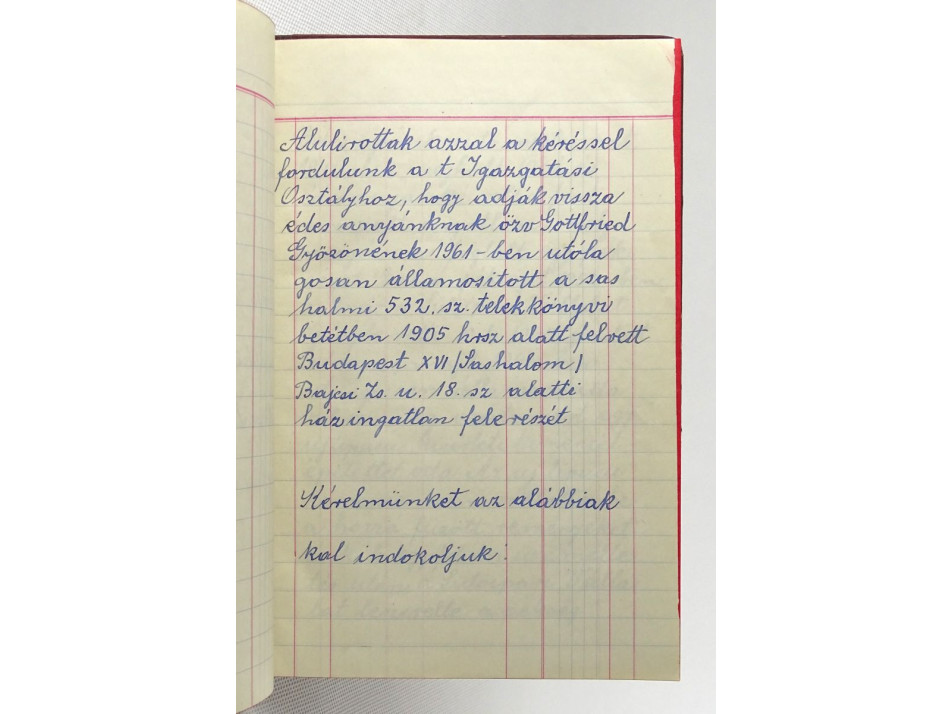 Alulirottak azzal a kéréssel
fordulunk a t Igazgatási
Osztályhoz, hogy adják vissza
édes anyánknak özv Gottfried
Győzőnének 1961-ben utóla
gosan államositott a sas
halmi 532. sz. telekkönyvi
betétben 1905 hrsz alatt felvett
Budapest XVI /Sashalom/
Bajcsi Zs. u. 18. sz alatti
ház ingatlan fele részét
Kérelmünket az alábbiak
kal indokoljuk: